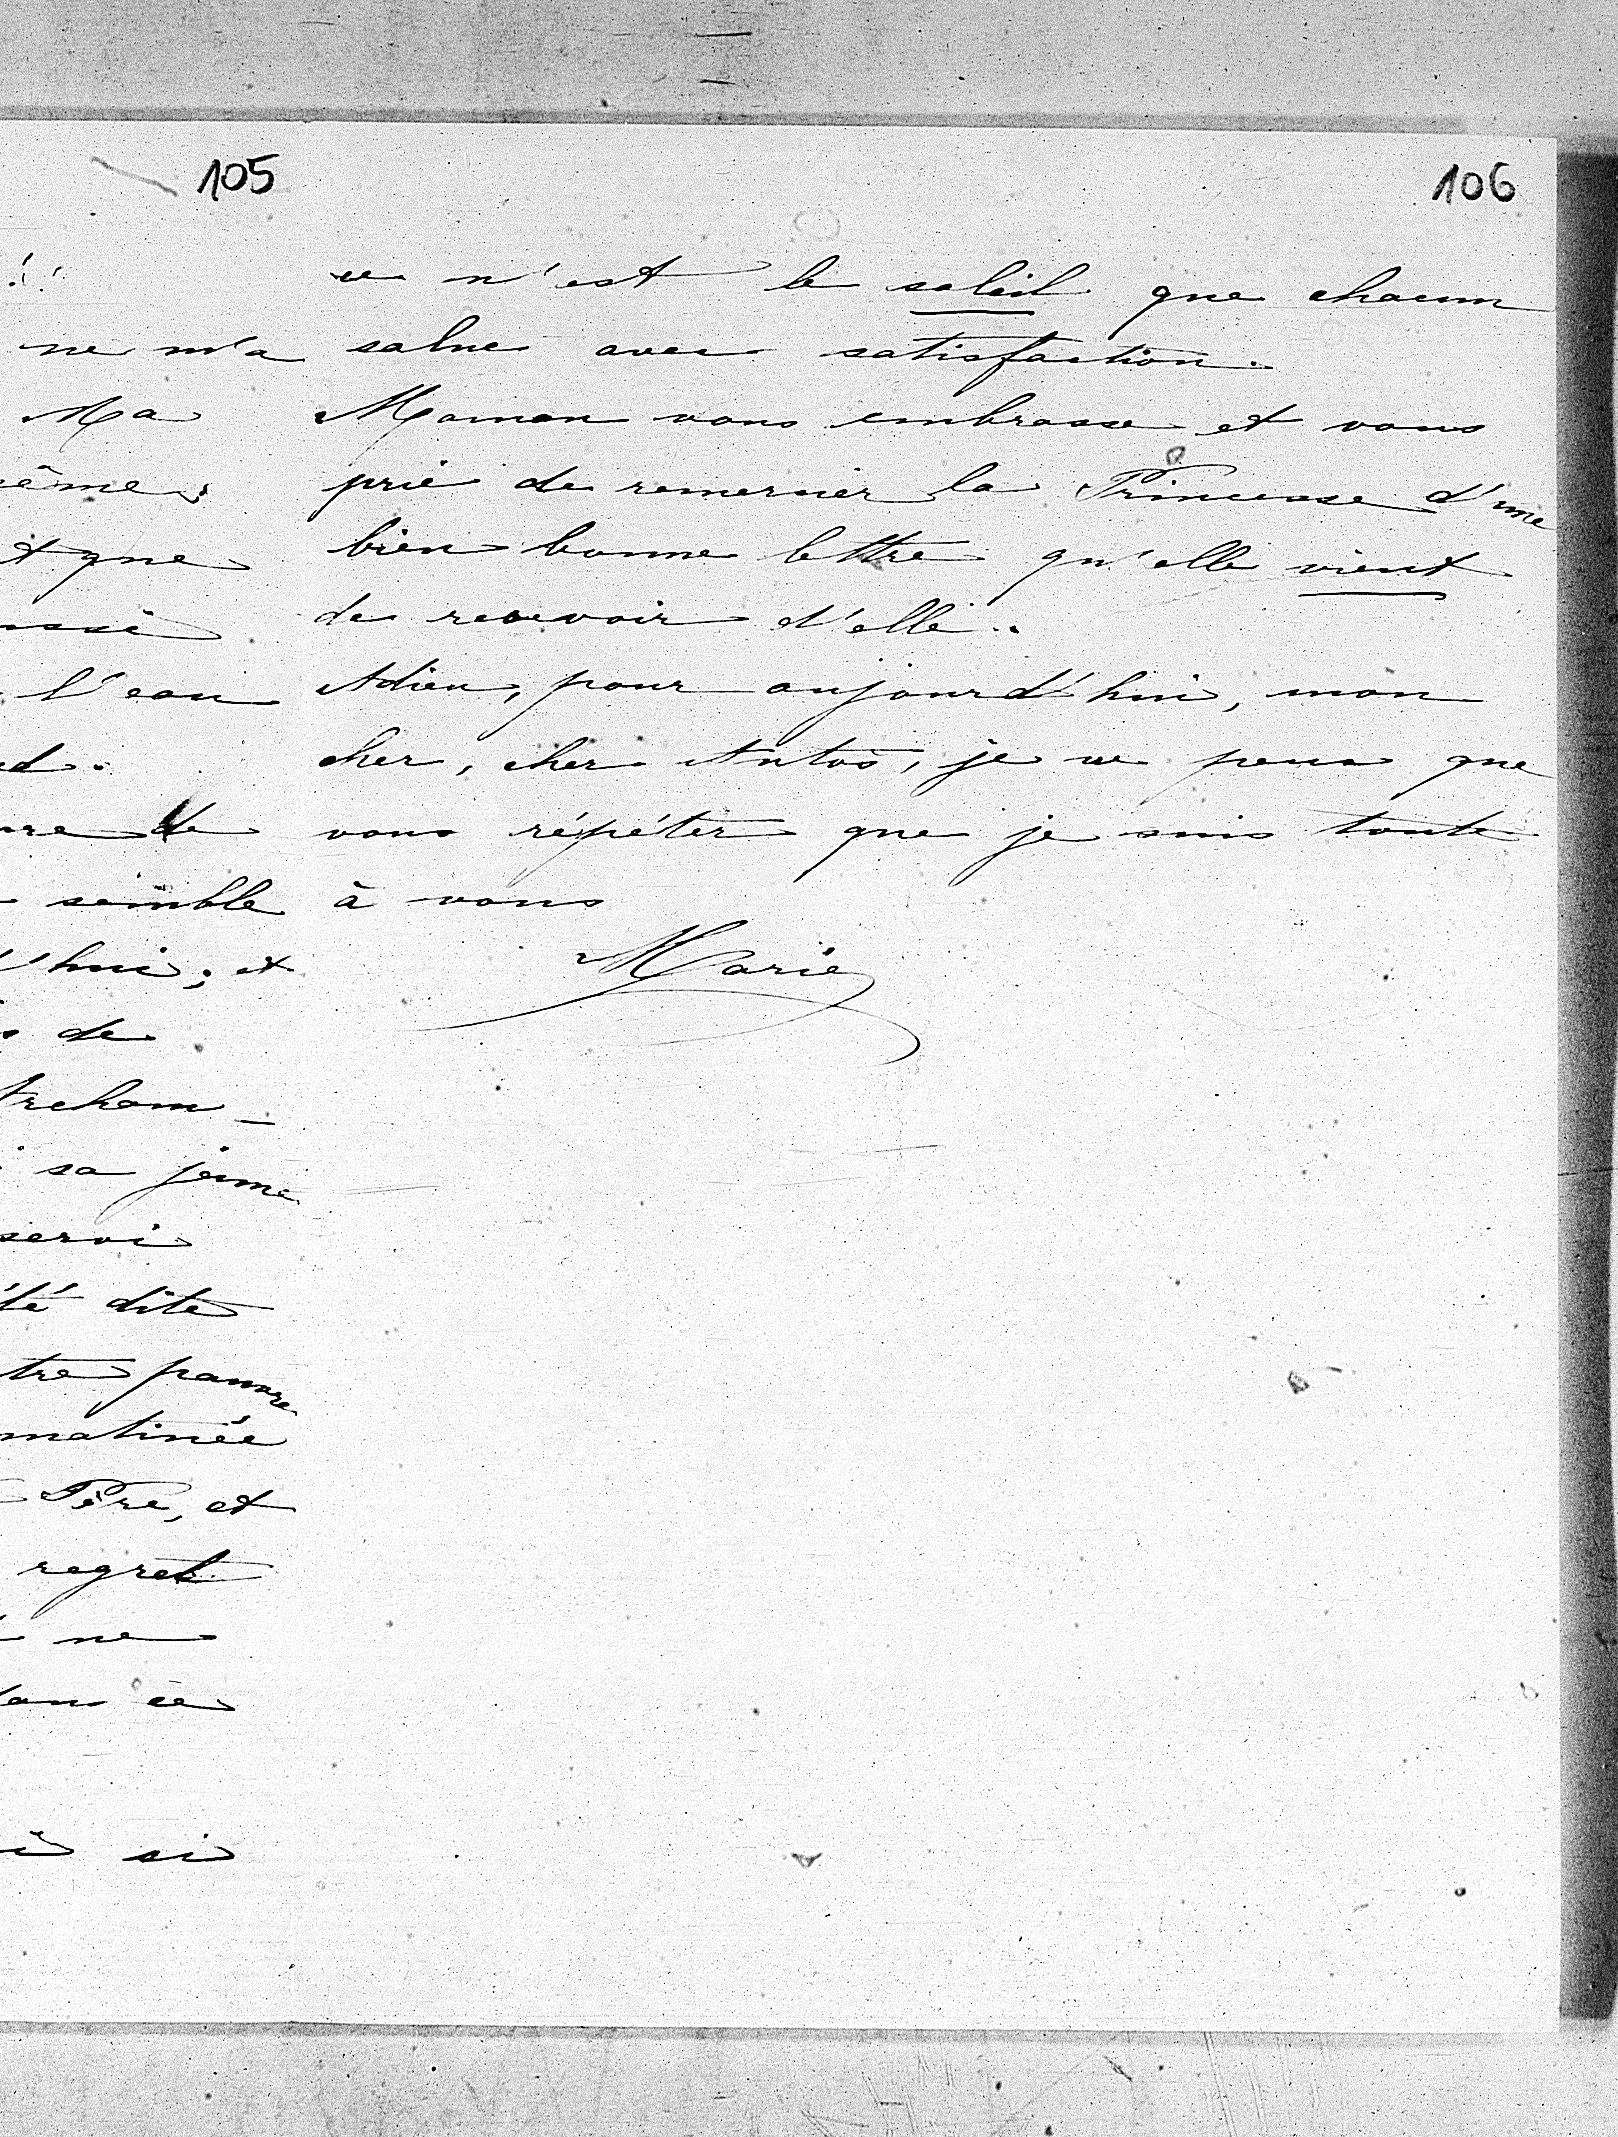 105
!!
ne m'a
Ma
ême;
t que
ussi
l'eau
d.
ure de
semble
'hui; et
s de
trecham-
sa jeune
servi
'té dite
tre pauvre
matinée
Père, et
regret
ne
dans ce
si
106
ce n'est le soleil que chacun
salue avec satisfaction.
Maman vous embrasse et vous
prie de remercier la Princesse d'une
bien bonne lettre qu'elle vient
de recevoir d'elle.
Adieu, pour aujourd'hui, mon
cher, cher Antos, je ne peux que
vous répéter que je suis toute
à vous
Marie